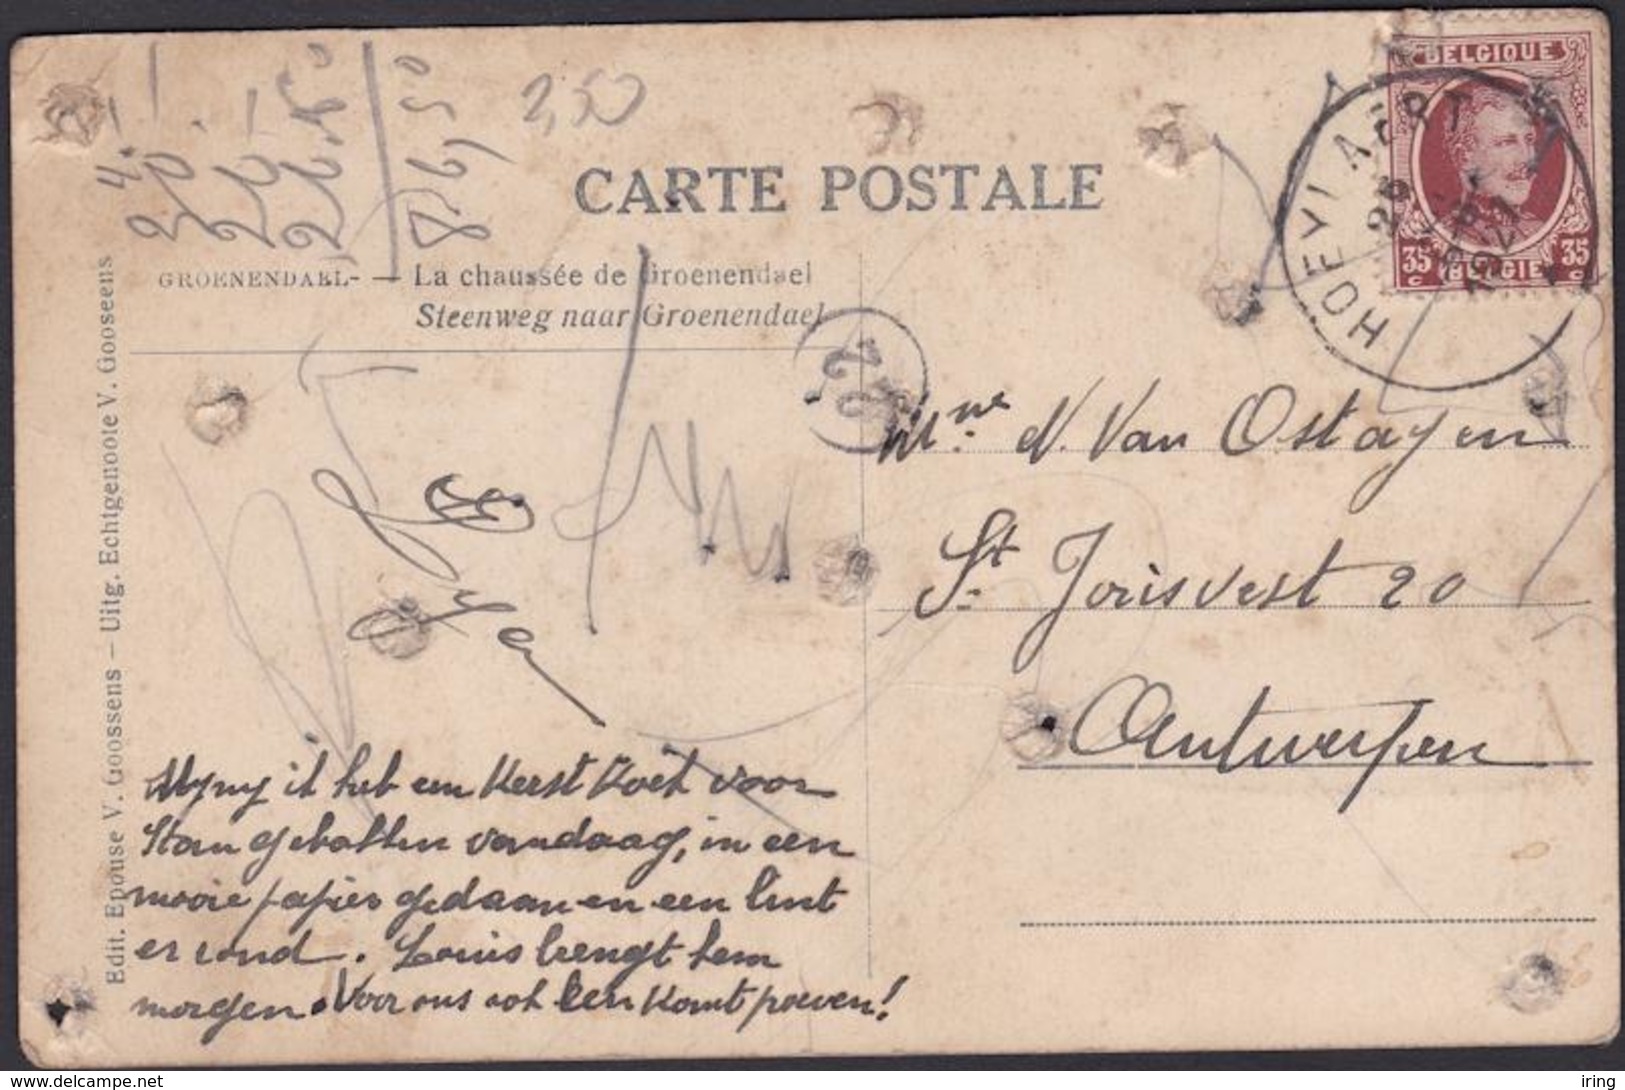 BELGIQUE
35 c 35 c
BELGIË
HOEYLAERT
4.
2,50
CARTE POSTALE
GROENENDAEL- — La chaussée de Groenendael
Steenweg naar Groenendael
Edit. Epouse V. Goossens — Uitg. Echtgenoote V. Gooseens
Mme N. Van Ostayen
St Jorisvest 20
Antwerpen
ik heb een Kerst Koek voor
Stan gebakken vandaag, in een
mooie papier gedaan en een lint
er rond. Louis brengt hem
morgen. Voor ons ook een komt proeven!
delcampe.net
iring